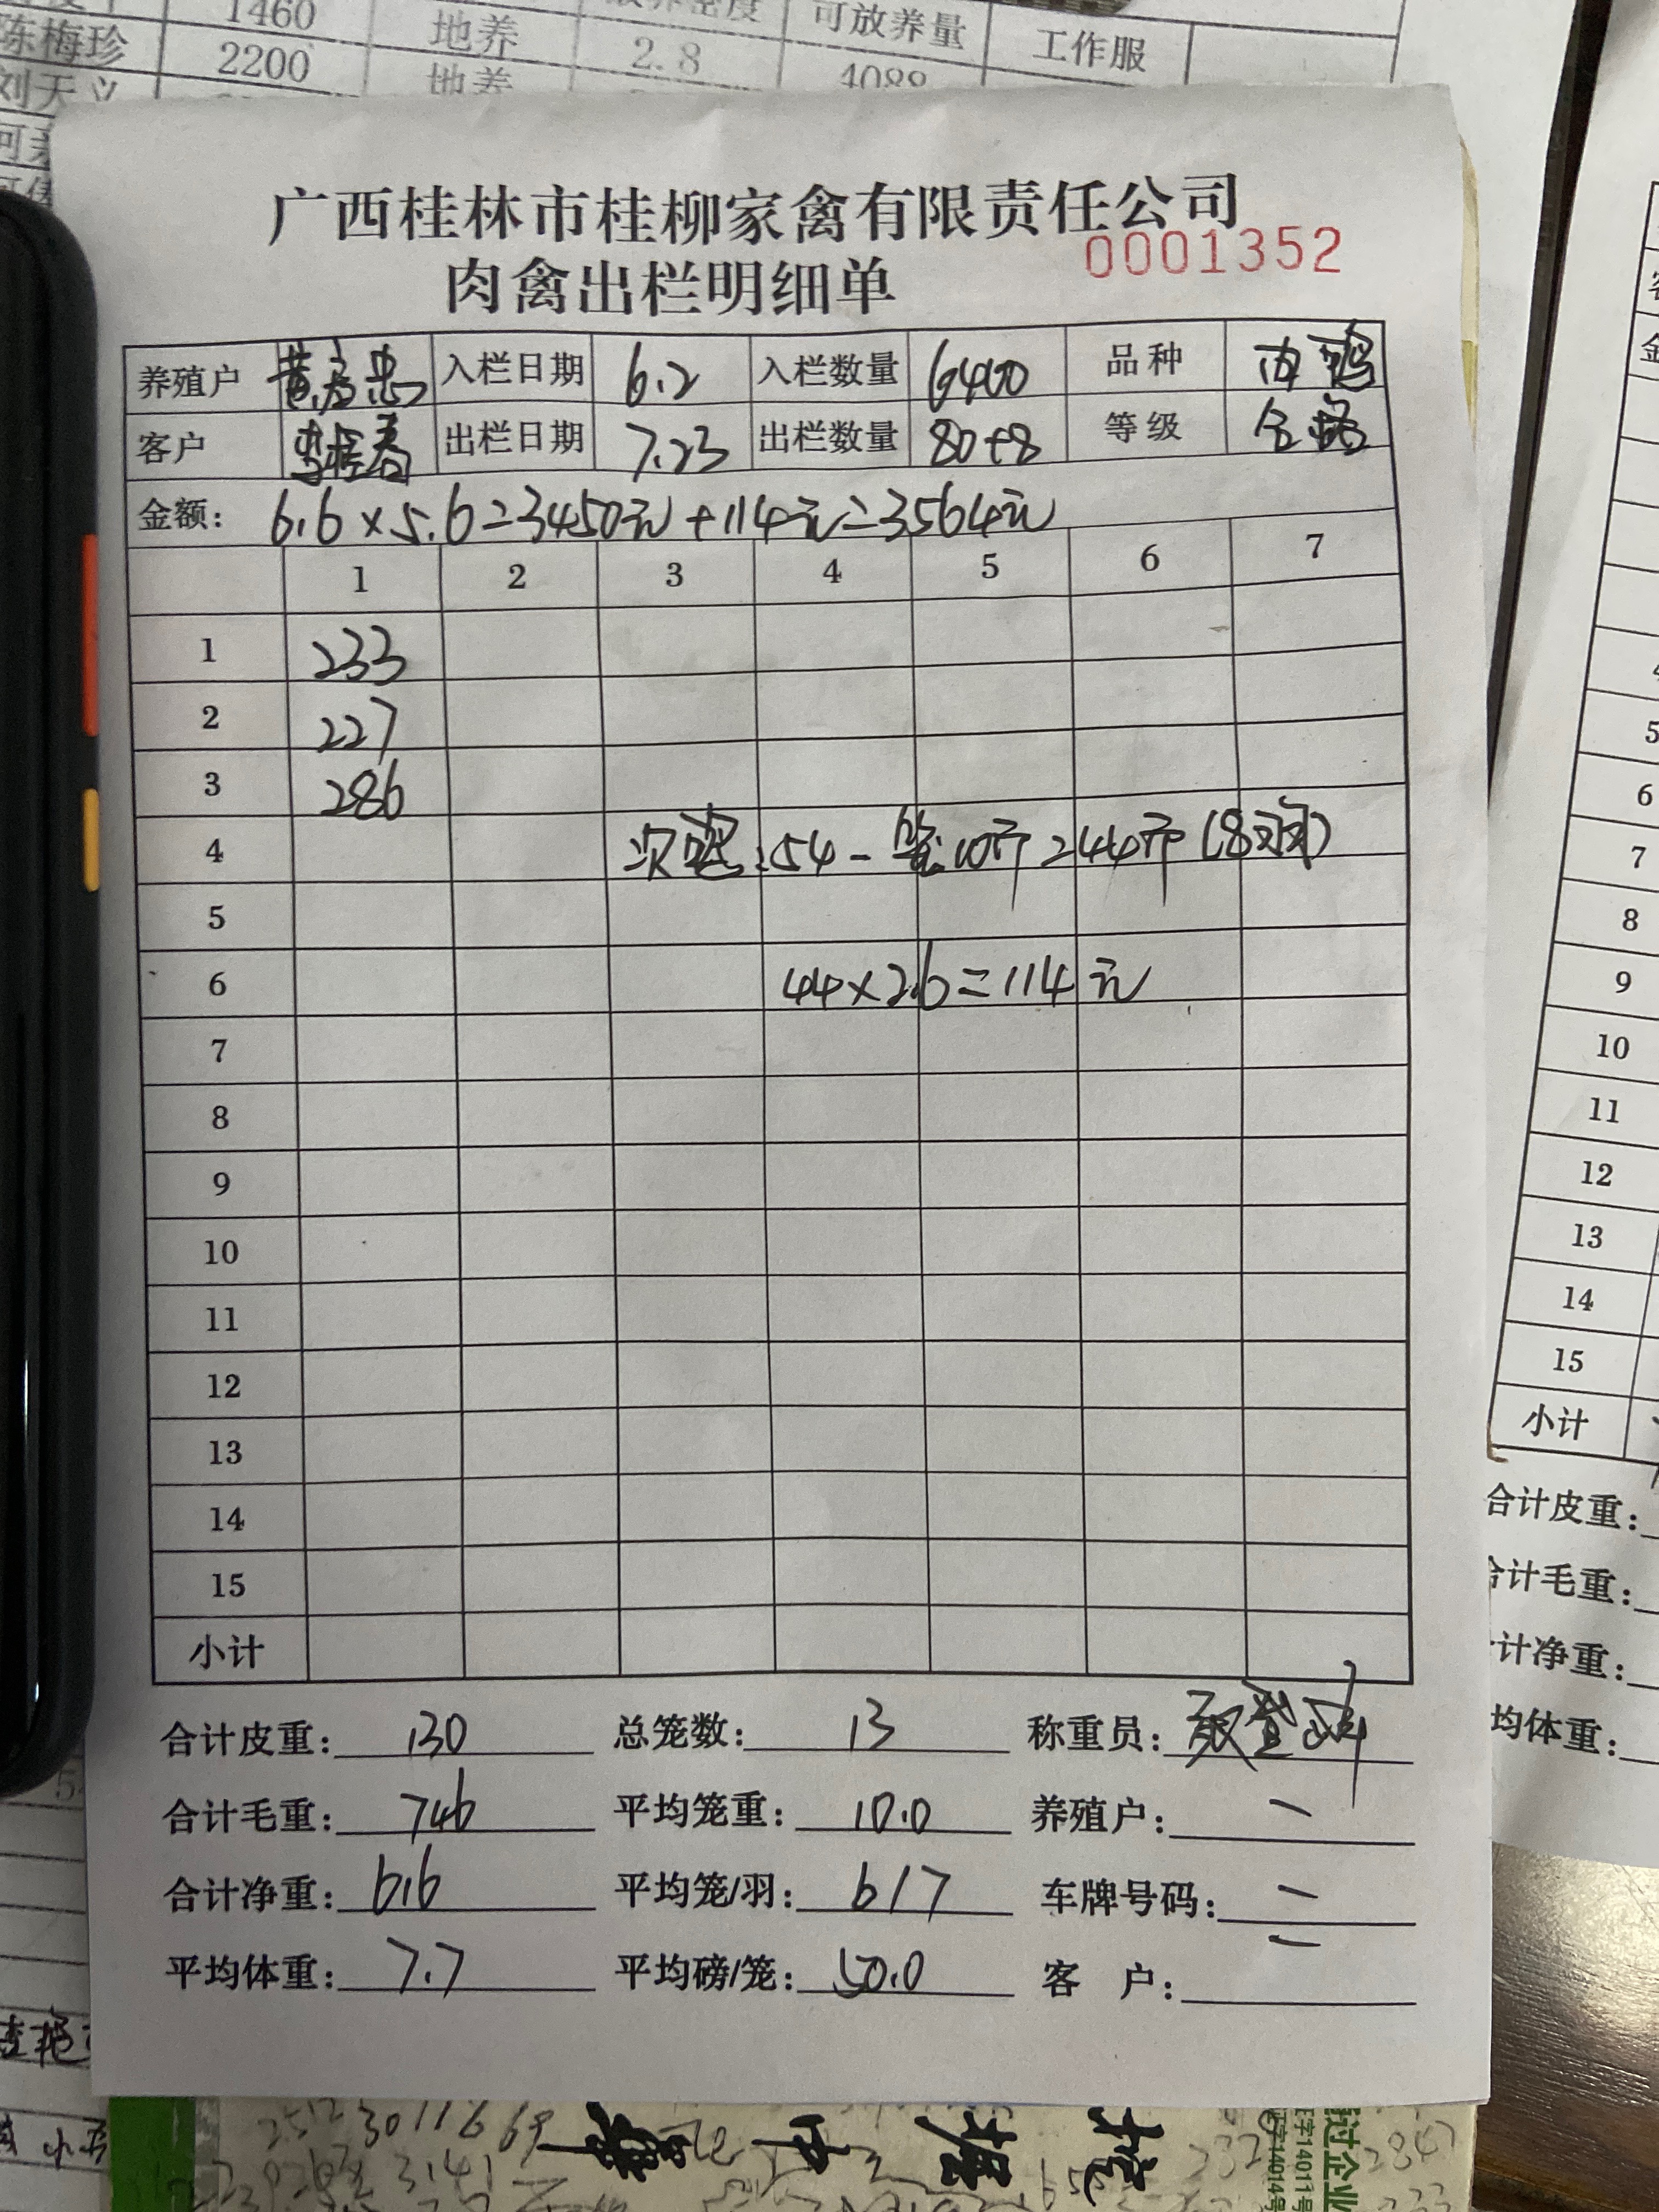 1460 地养 可放养量
陈梅珍 2200 地养 2.8 4088 工作服
刘天义
广西桂林市桂柳家禽有限责任公司
0001352
肉禽出栏明细单
养殖户 入栏日期 6.2 入栏数量 6400 品种 肉鸭
客户 出栏日期 7.23 出栏数量 80+8 等级 合格
金额: 616×5.6=3450元+114元=3564元
1 2 3 4 5 6 7
1 233
2 227
3 286
4 次鸭:54-笼10斤=44斤(8羽)
5
6 44×2.6=114元
7
8
9
10
11
12
13
14
15
小计
合计皮重: 130 总笼数: 13 称重员:
合计毛重: 746 平均笼重: 10.0 养殖户:
合计净重: 616 平均笼/羽: 6/7 车牌号码:
平均体重: 7.7 平均磅/笼: 50.0 客 户:
5
6
7
8
9
10
11
12
13
14
15
小计
合计皮重:
合计毛重:
计净重:
均体重: